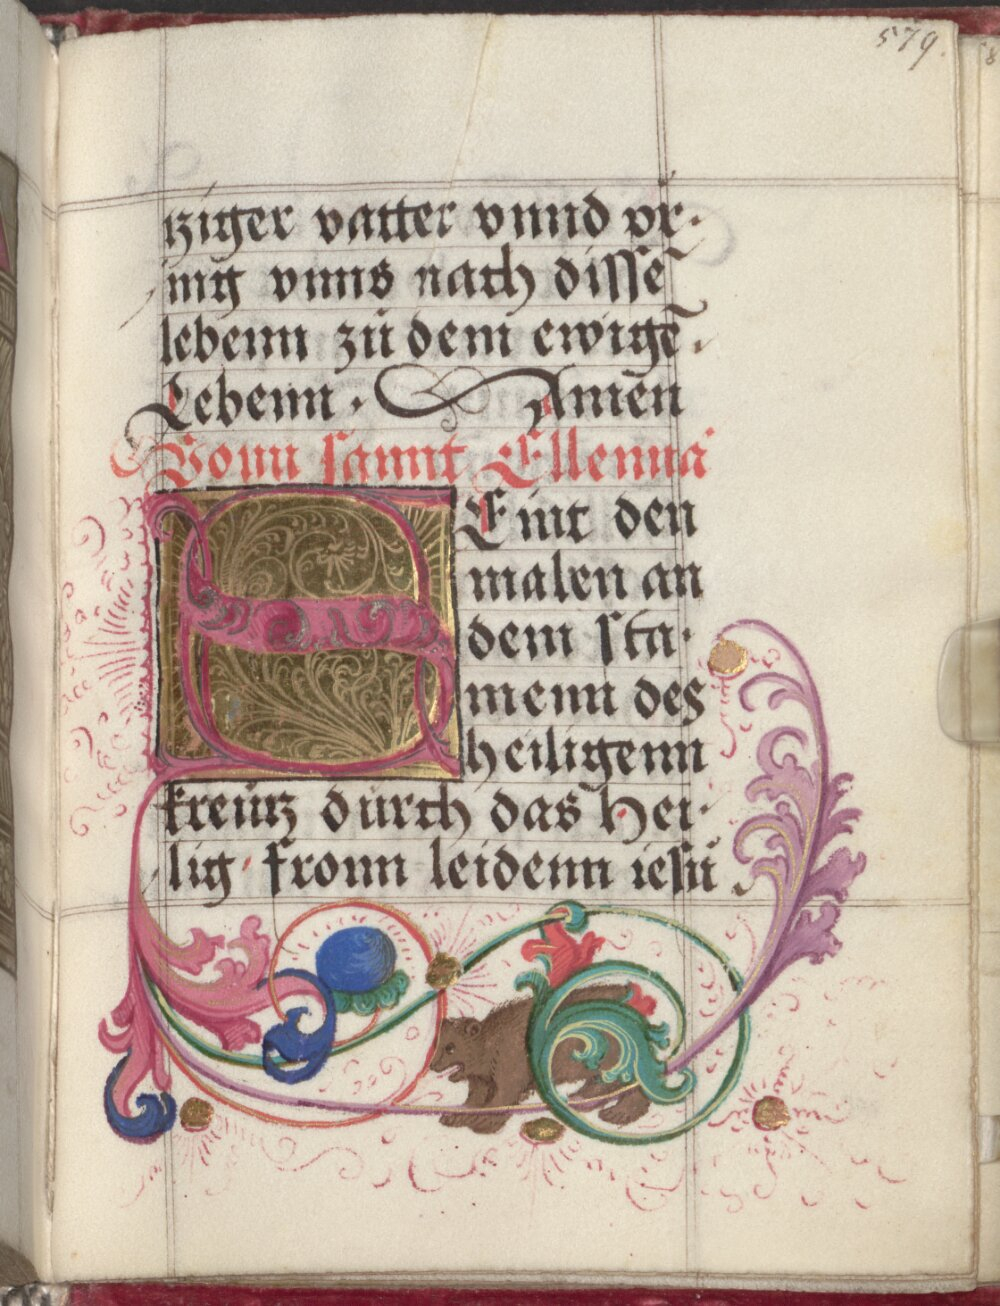 579.
tziger vatter vnnd vr-
ing vnns nach dissē
lebenn zů dem ewigē
Lebenn. Amen
Vonn sannt Ellenna
SEint den
malen an
dem sta-
menn des
heiligenn
kreütz dürch das hei-
lig fronn leidenn iesü